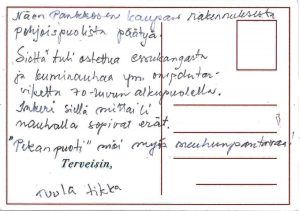 Näen Pankkosen kaupan rakennuksista
pohjoispuolista päätyä.
Sieltä tuli ostettua essukangasta
ja kuminauhaa ym. ompelutar-
viketta 70-luvun alkupuolella.
sillä mittaili
nauhalla sopivat erät.
"Pekanpuoti" möi myös
Terveisin,
Tuula Tikka